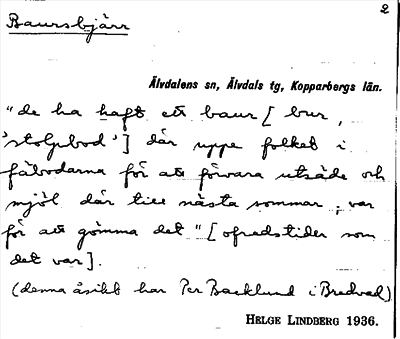 2
Baursbjärr
Älvdalens sn, Älvdals tg, Kopparbergs län.
"de ha haft ett baur [ bur,
'stolpbod'] där uppe folket i
fäbodarna för att förvara utsäde och
mjöl där till nästa sommar, var
för att gömma det" [ofredstider som
det var].
(denna åsikt har Per Backlund i Bredvad)
HELGE LINDBERG 1936.